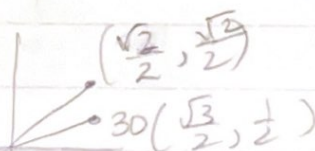 (√2/2, √2/2)
30(√3/2, 1/2)